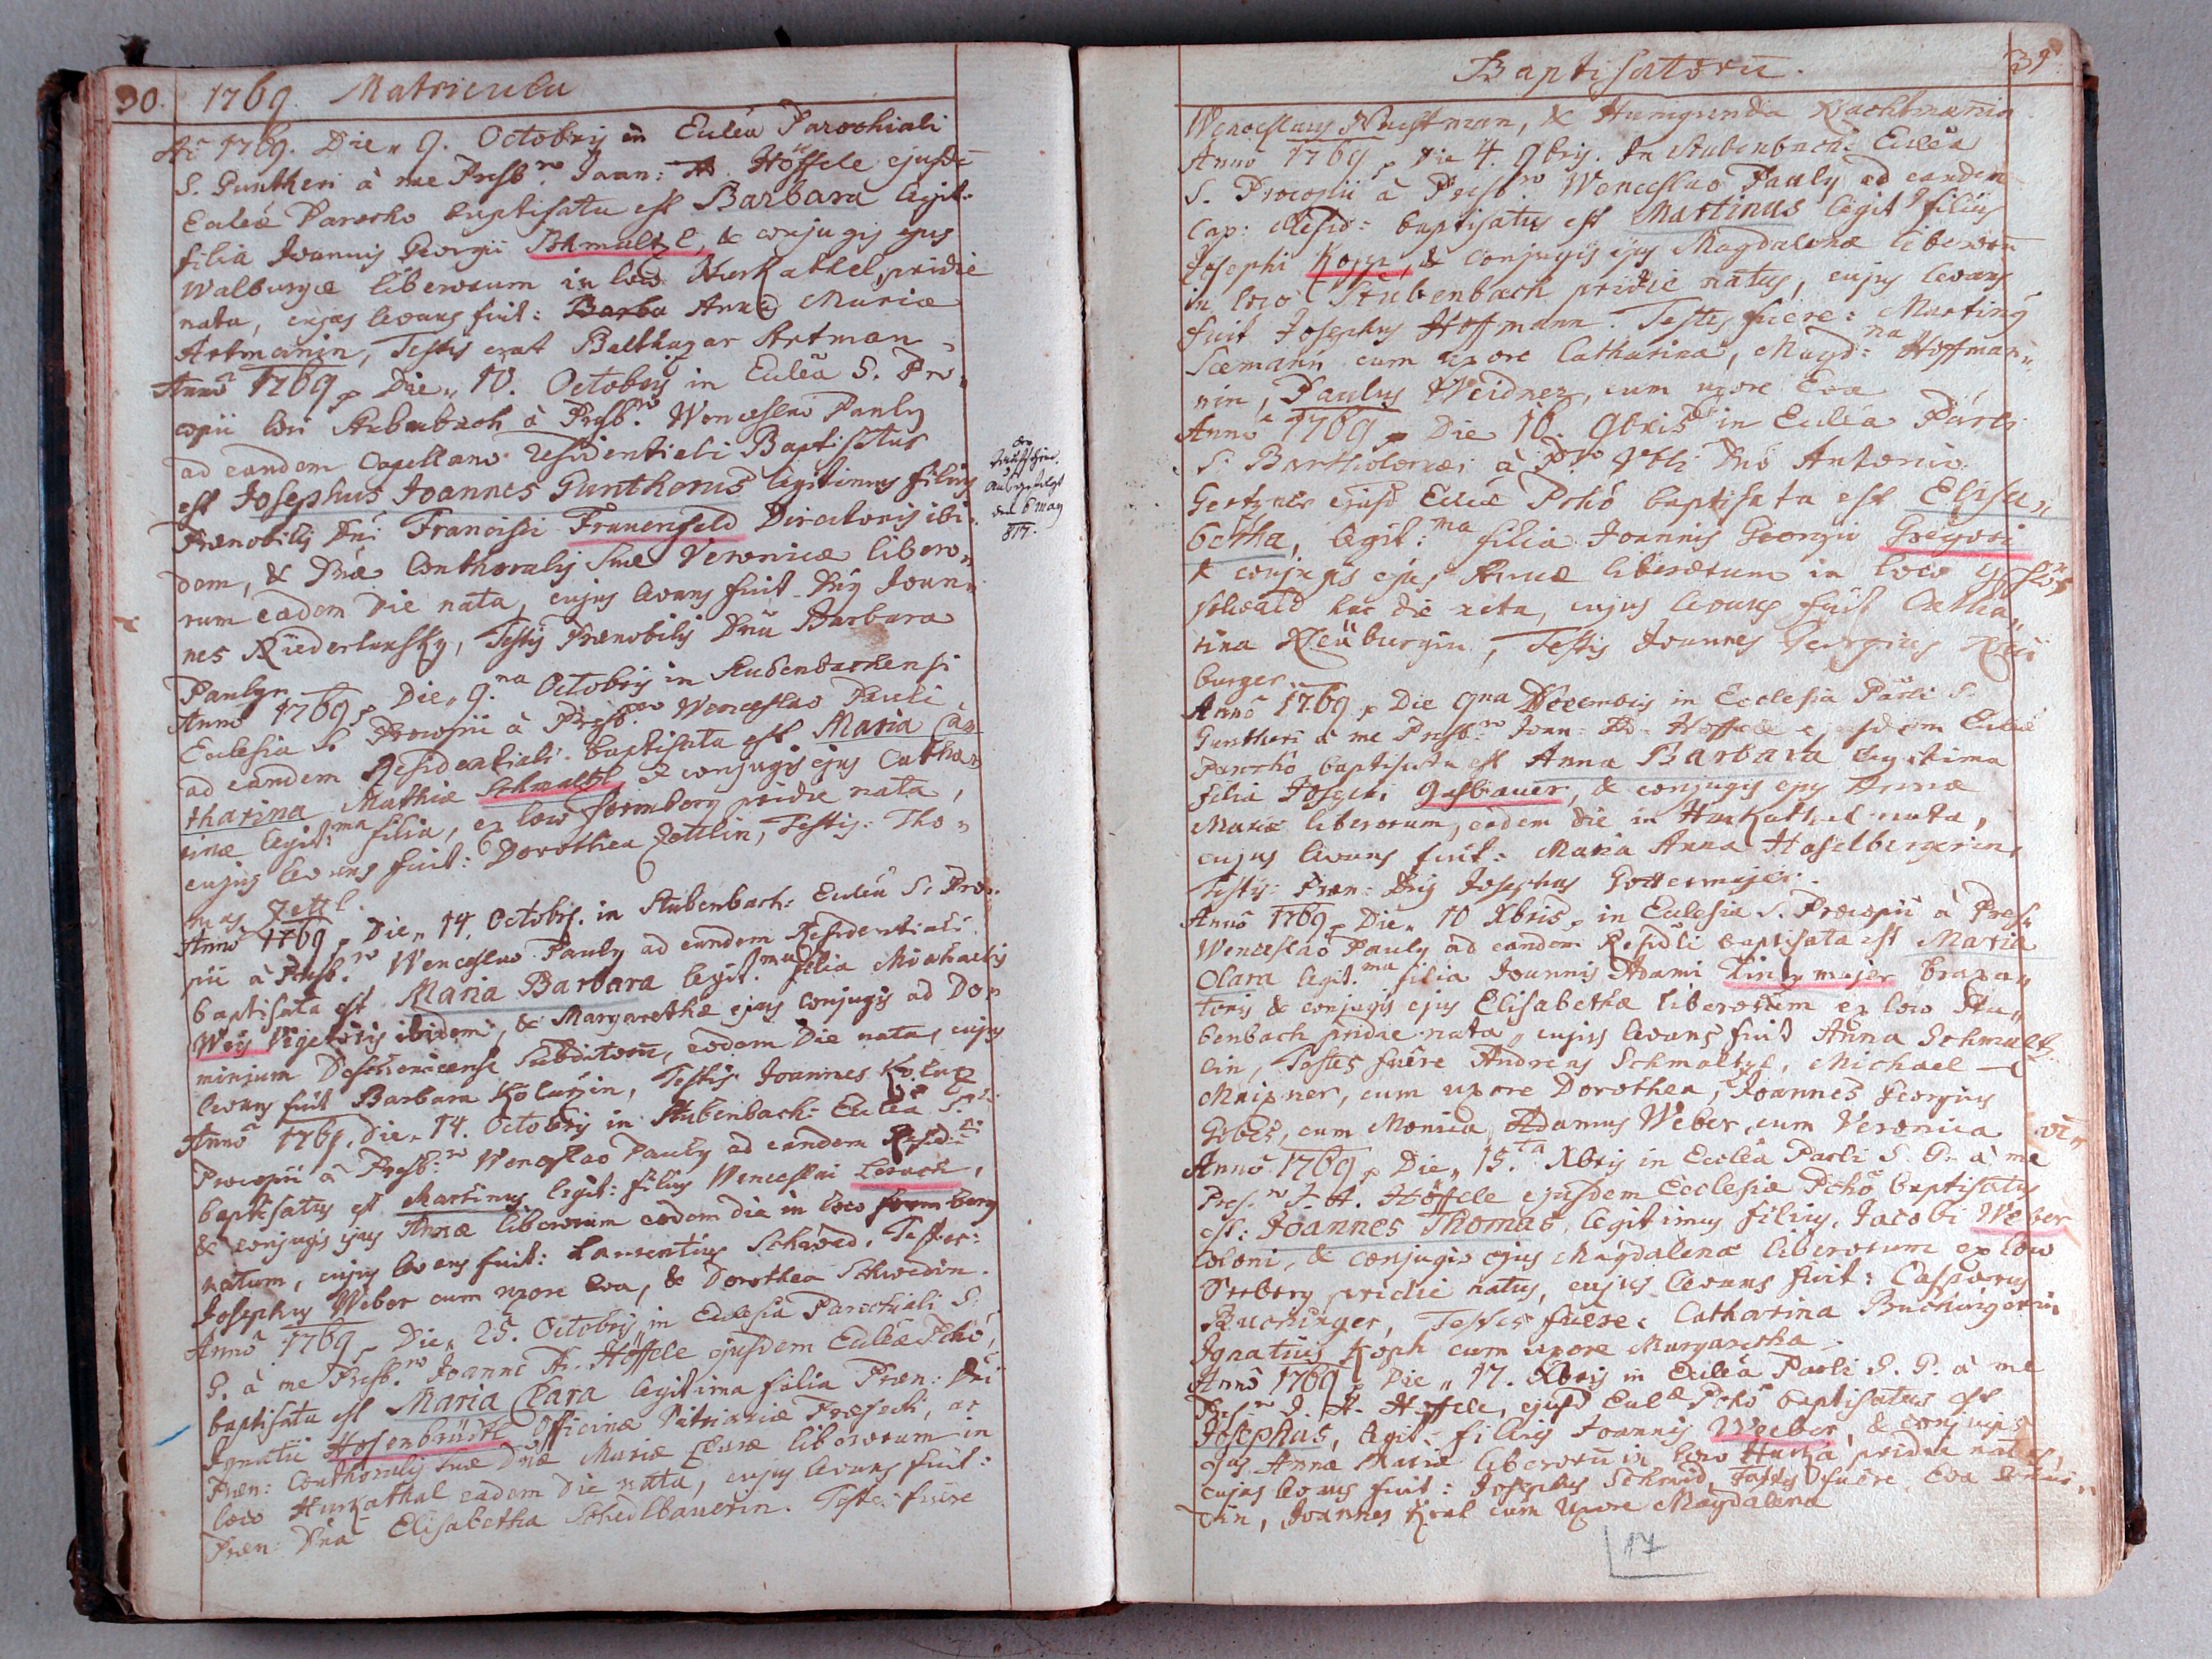 30. 1769. Matricula
Aō 1769. Die„ 9. Octobrij in Eccleā Parochiali
S. Guntheri à me Presb.ro Joan: A. Höffele ejusdē
Eccleā Parocho baptisata est Barbara legit.
filia Joannis Georgii Schmaltzl, & conjugis ejus
Walburgæ liberorum in loco Hurkathel pridie
nata, cujus levans fuit: Barba Anna Maria
Artmanin, Testis erat Balthazar Artman
Annō 1769 Die„ 10. Octobrij in Eccleā S. Pro„
copii loci Stubenbach à Presb.ro Wenceslao Pauly
ad eandem Capellano residentiali Baptisatus
est Josephus Joannes Guntherus legitimus filius
Prænobilis Dni Francisci Frauenfeld Directoris ibi„
dem, & Dnæ Conthoralis suæ Veronicæ libero„
rum eadem die nata, cujus levans fuit Dnus Joan„
nes Riederlunsky, Testis Prænobilis Dna Barbara
Paulyn
Annō 1769 Die„ 9.na Octobrij in Stubenbachensi
Ecclesia S. Procopii à Presb.ro Wenceslao Pauli
ad eandem Residentiali baptisata est Maria Ca„
tharina Mathiæ Schmaltzl & conjugis ejus Catha„
rinæ legit:ma filia, ex loco Formberg pridie nata,
cujus levans fuit: Dorothea Zettlin, Testis: Tho„
mas Zettl.
Annō 1769 Die„ 14. Octobrij. in Stubenbach: Eccleā S. Pro„
pii à Presb.ro Wenceslao Pauly ad eandem Residentiali
baptisata est Maria Barbara legit.ma filia Michaelis
Weis Vigetoris ibidem, & Margarethæ ejus conjugis ad Do„
minium Deschenicense Subditorū, eodem Die nata, cujus
levans fuit Barbara Kolarzin, Testis Joannes Kolarz
Annō 1769. die„ 14. Octobrij in Stubenbach: Eccleā S.
Procopii à Presb:ro Wenceslao Pauly ad eandem Resid:
baptisatus est Martinus legit: filius Wenceslai Lerach,
& conjugis ejus Annæ liberorum eodem die in loco Formberg
natum, cujus levans fuit: Laurentius Schwed, Testes:
Josephus Weber cum uxore Eva, & Dorothea Schwedin.
Annō 1769 Die„ 25. Octobrij in Ecclesia Parochiali S
G. à me Presb.ro Joanne A. Höffele ejusdem Eccleæ Pchō,
baptisata est Maria Clara legitima filia Præn: Dni
Ignatii Hosenbrüdtl Officinæ Vitriariæ Præfecti, ac
Præn: Conthoralis suæ Dnæ Mariæ Claræ liberorum in
loco Hurkathal eadem die nata, cujus levans fuit:
Præn: Dna Elisabetha Schedlbauerin. Testes fuere
den
Taufschein
ausgefolgt
den 6 may
817.
Baptisatorū. 31
Wenceslaus Nustman, & Kunigunda Nachtmanin
Annō 1769 Die 4. 9bris. In Stubenbach: Eccleā
S. Procopii à Presb.ro Wenceslao Pauly ad eandem
Cap: Resid: baptisatus est Martinus legit filius
Josephi Kopp, & conjugis ejus Magdalenæ liberorū
in loco Stubenbach pridie natus, cujus levans
fuit Josephus Hoffmann. Testes fuere: Martinus
Seemann cum uxore Catharina, Magd:na Hoffman„
nin, Paulus Weidner, cum uxore Eva
Annō 1769 Die 16. 9bris in Eccleā Parli
S. Bartholomæi à Dno Antonio
Gertzner ejusd Eccleæ Pchō baptisata est Elisa„
betha, legit:ma filia Joannis Georgii Gregori
& conjugis ejus Annæ liberorum in loco
hac die nata, cujus levans fuit Catha„
rina Kleüburgin, Testis Joannes Georgius Kleü
burger.
Annō 1769 Die 9na Decembris in Ecclesia Parli S.
Guntheri à me Presb:ro Joan: A. Höffele ejusdem Eccleæ
Parocho baptisata est Anna Barbara legitima
filia Josephi Gasbauer, & conjugis ejus Annæ
Mariæ liberorum, eodem die in Hurkathel nata,
cujus levans fuit: Maria Anna Haselbergerin,
Testis: Præn: Dnus Josephus Gottesmajer.
Annō 1769 Die„ 10 Xbris, in Ecclesia S. Procopii à Presb.
Wenceslao Pauly ad eandem Residli baptisata est Maria
Clara legit.ma filia Joannis Adami Linzmajer braxa„
toris & conjugis ejus Elisabethæ liberorum ex loco Stu„
benbach pridie nata, cujus levans fuit Anna Schmaltz
lin, Testes fuere Andreas Schmaltzl, Michael
Meixner, cum uxore Dorothea, Joannes Georgius
Gebes, cum Monica, Adamus Weber, cum Veronica
Annō 1769 Die„ 15.ta Xbris in Eccleā Parli S. G. à me
Pres.ro J. A. Höffele ejusdem Ecclesiæ Pchō baptisatus
est: Joannes Thomas, legitimus filius, Jacobi Weber
coloni, & conjugis ejus Magdalenæ liberorum ex loco
Seeberg pridie natus, cujus levans fuit: Casparus
Buchinger, Testes fuere: Catharina Buchingerin
Ignatius Koph cum uxore Margaretha.
Annō 1769 Die„ 17. Xbris in Eccleā Parli S. G. à me
Pres.ro J. A. Höffele, ejusd Eccleæ Pchō baptisatus est
Josephus, legit: filius Joannis Weeber, & conjugis
ejus Annæ Mariæ liberorū in loco Hurka pridie natus,
cujus levans fuit: Josephus Schmid, Testes fuere, Eva
din, Joannes Kral cum uxore Magdalena
17